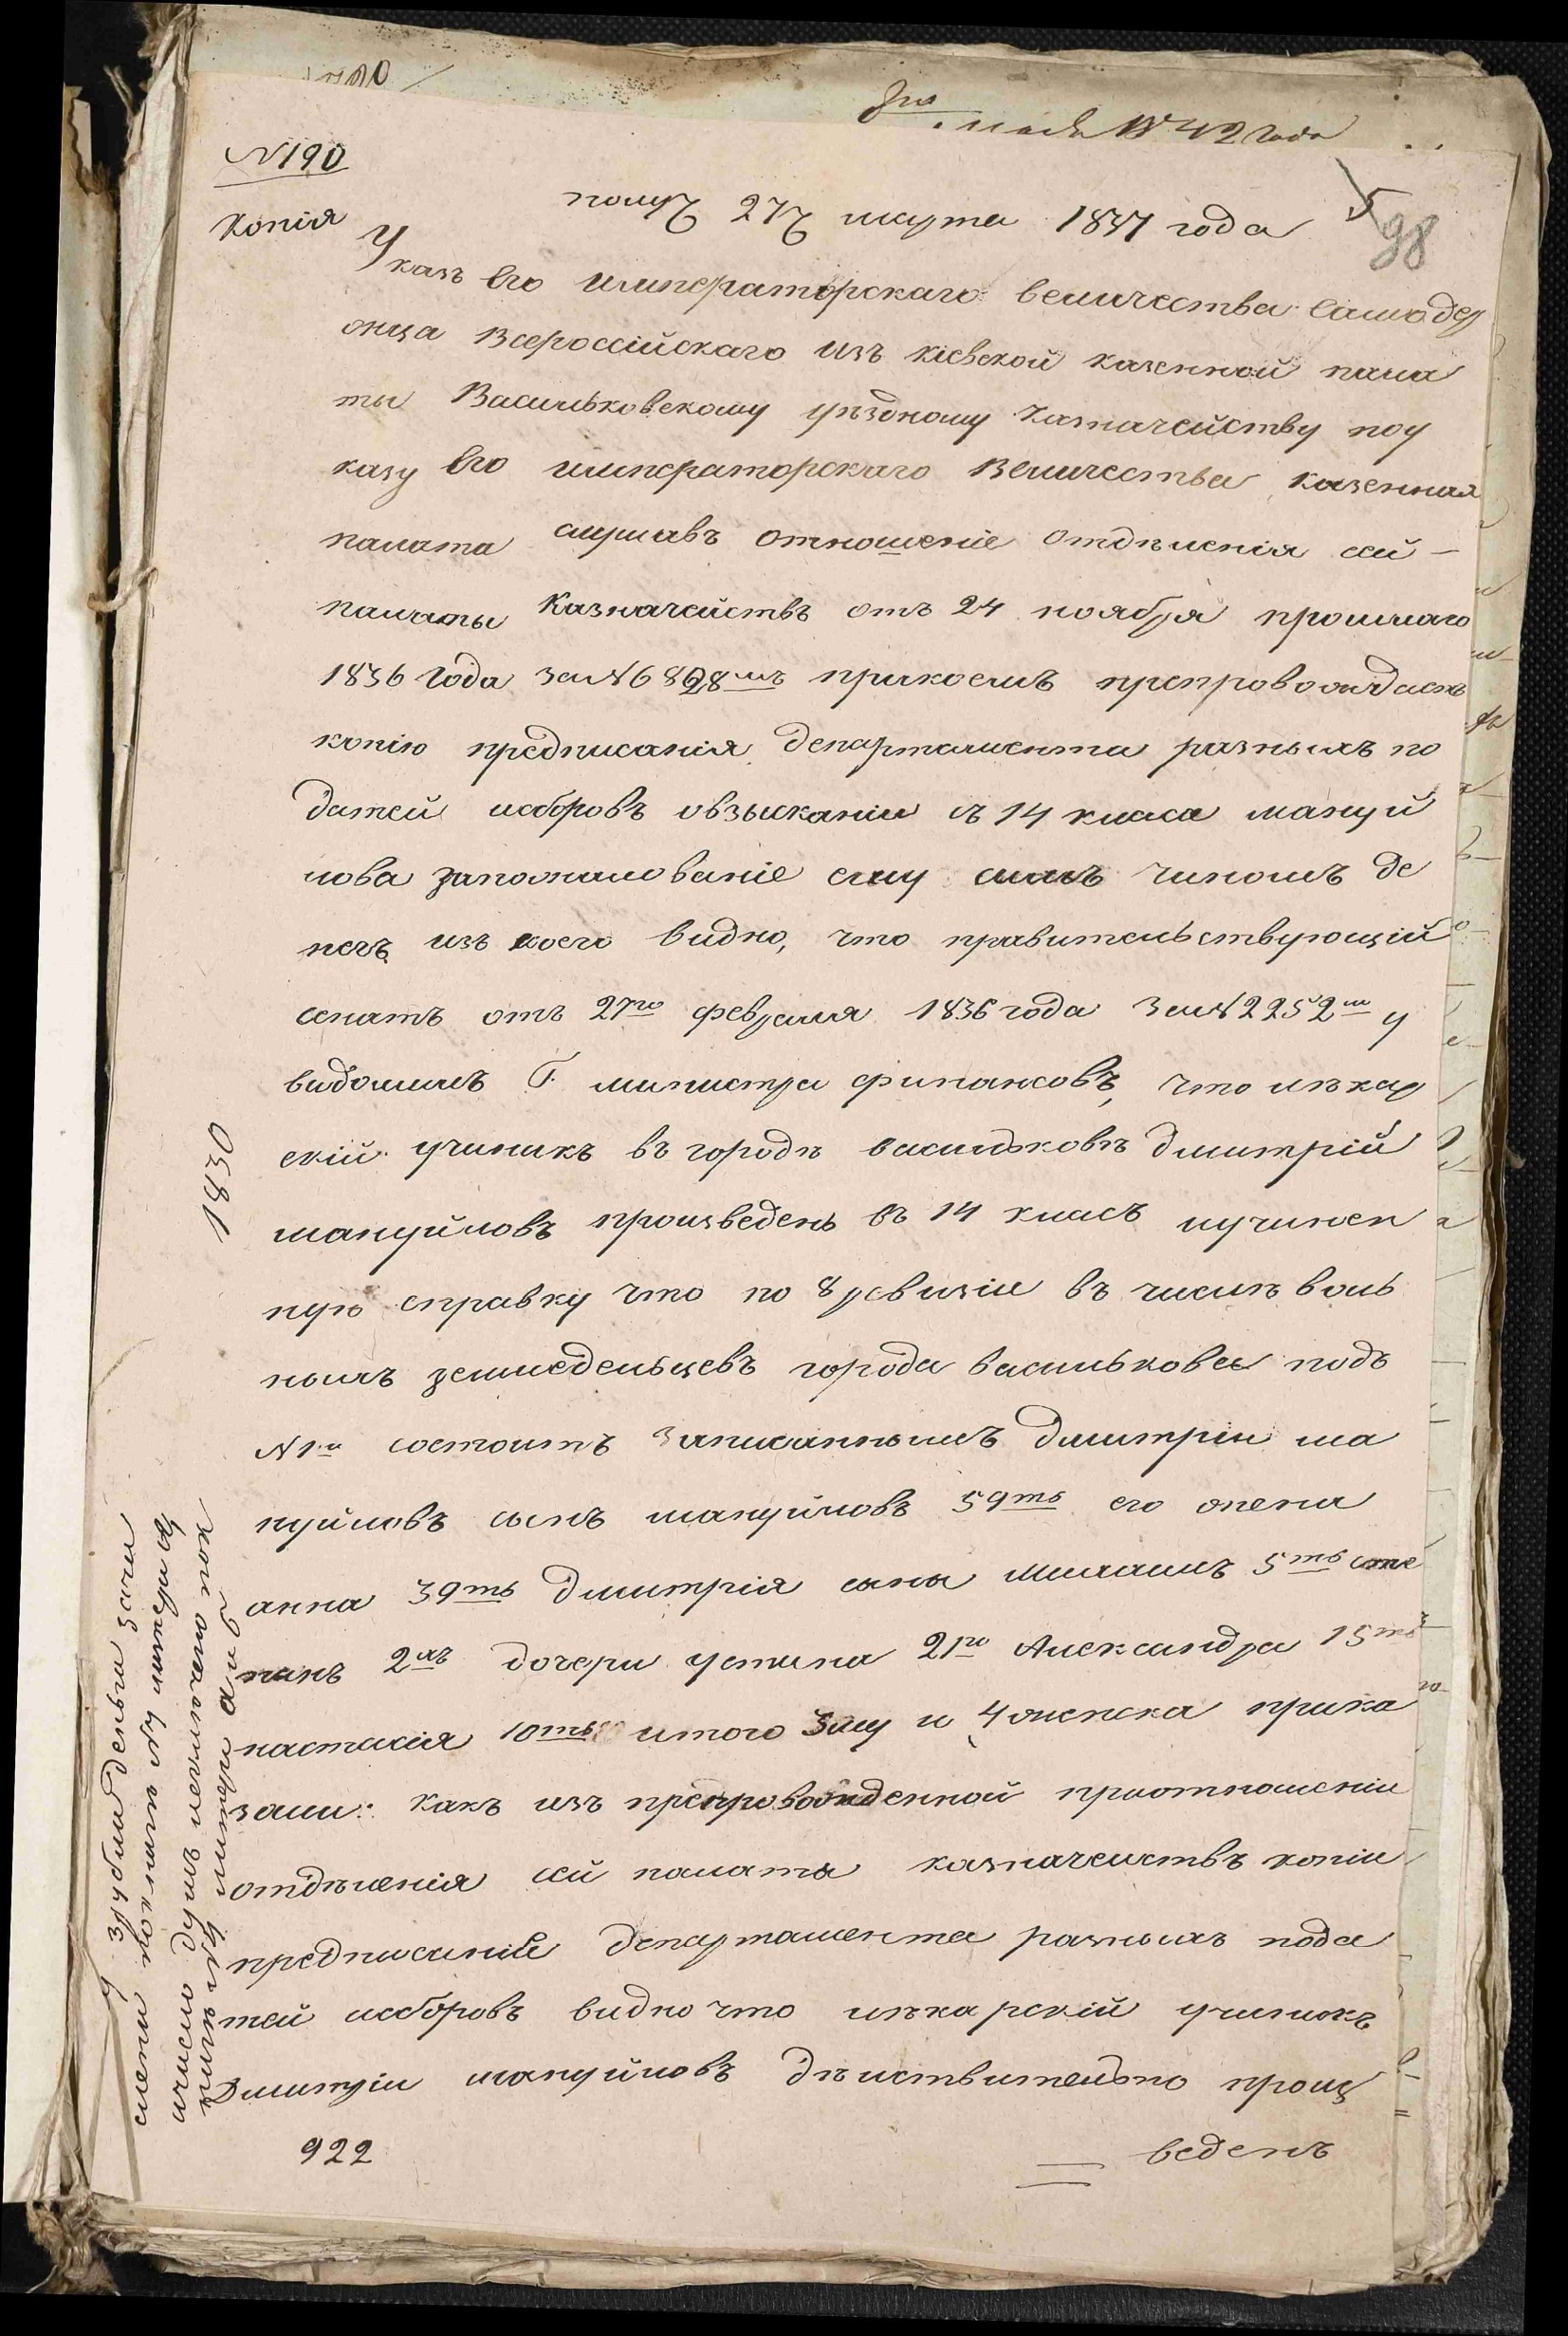 190
1842 года
№190
Копія
получ 27ч марта 1837 года
5
98
Указъ Его императорскаго величества Самодер
жца Всероссійскаго изъ кіевской казенной пала
ты Васильковскому уѣздному Казначейству поу
казу Его императорскаго Величества казенная
палата слушавъ отношеніе Отдѣленія сей -
палаты Казначействъ отъ 24 ноября прошлаго
1836 года за №6898мъ прикоемъ препровождаетъ
копію предписанія департамента разныхъ по
датей исборовъ овзысканіи съ 14 класа мануй
лова запожалованіе ему симъ чиномъ де
негъ изъ коего видно, что правительствующій
сенатъ отъ 27го февраля 1836 года за №2252м у
видомилъ Г. министра финансовъ, что лѣкар
скій ученикъ въ городѣ васильковѣ дмитрій
мануйловъ произведенъ въ 14 класъ иучинен
ную справку что по 8 ревизіи въ числѣ воль
ныхъ земледельцевъ города василькова подъ
№1м состоитъ записаннымъ дмитрій ма
нуйловъ сынъ мануйловъ 59ть его жена
анна 39ть дмитрія сыны Михаилъ 5ть сте
панъ 2хъ дочери устина 21го Александра 15ть
настасія 10ть итого 3му и 4 женска прика
зали: какъ изъ препровожденной приотношеніи
отдѣленія сей палаты казначействъ копіи
предписаніе департамента разныхъ пода
тей исборовъ видно что лѣкарскій ученикъ
Дмитріи мануйловъ дѣиствительно произ
веденъ
922
1830
3 рубли деньги